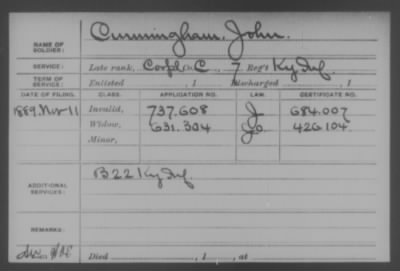 Cunningham, John.
NAME OF SOLDIER:
SERVICE: Late rank, Corp'l Co. C, 7 Reg't Ky Inf.
TERM OF SERVICE: Enlisted , 1 Discharged , 1
DATE OF FILING. CLASS. APPLICATION NO. LAW. CERTIFICATE NO.
1889. Nov 11 Invalid, 737.608 J 684.007
Widow, 631.304 426104
Minor,
ADDITIONAL SERVICES: B 22 Ky Inf.
REMARKS:
Died , 1 , at